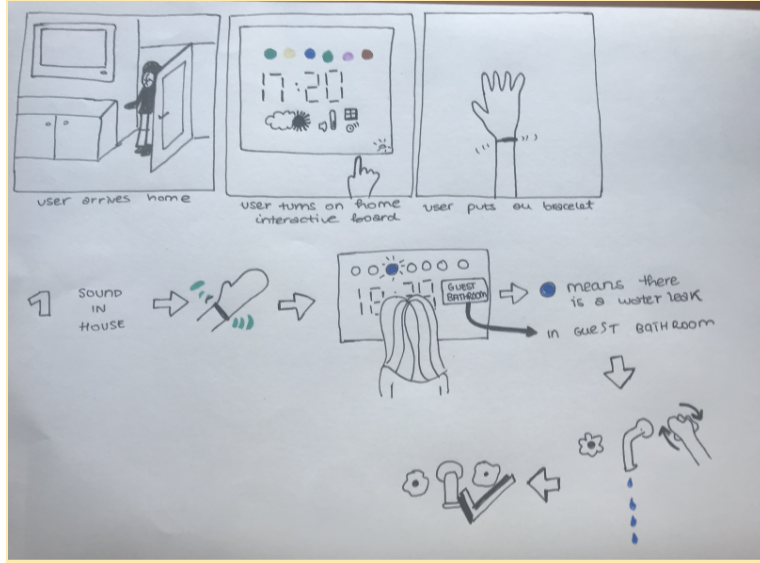 17:20
user arrives home
user turns on home
interactive board
user puts on bracelet
1
SOUND
IN
HOUSE
GUEST
BATHROOM
means there
is a water leak
in GUEST BATHROOM